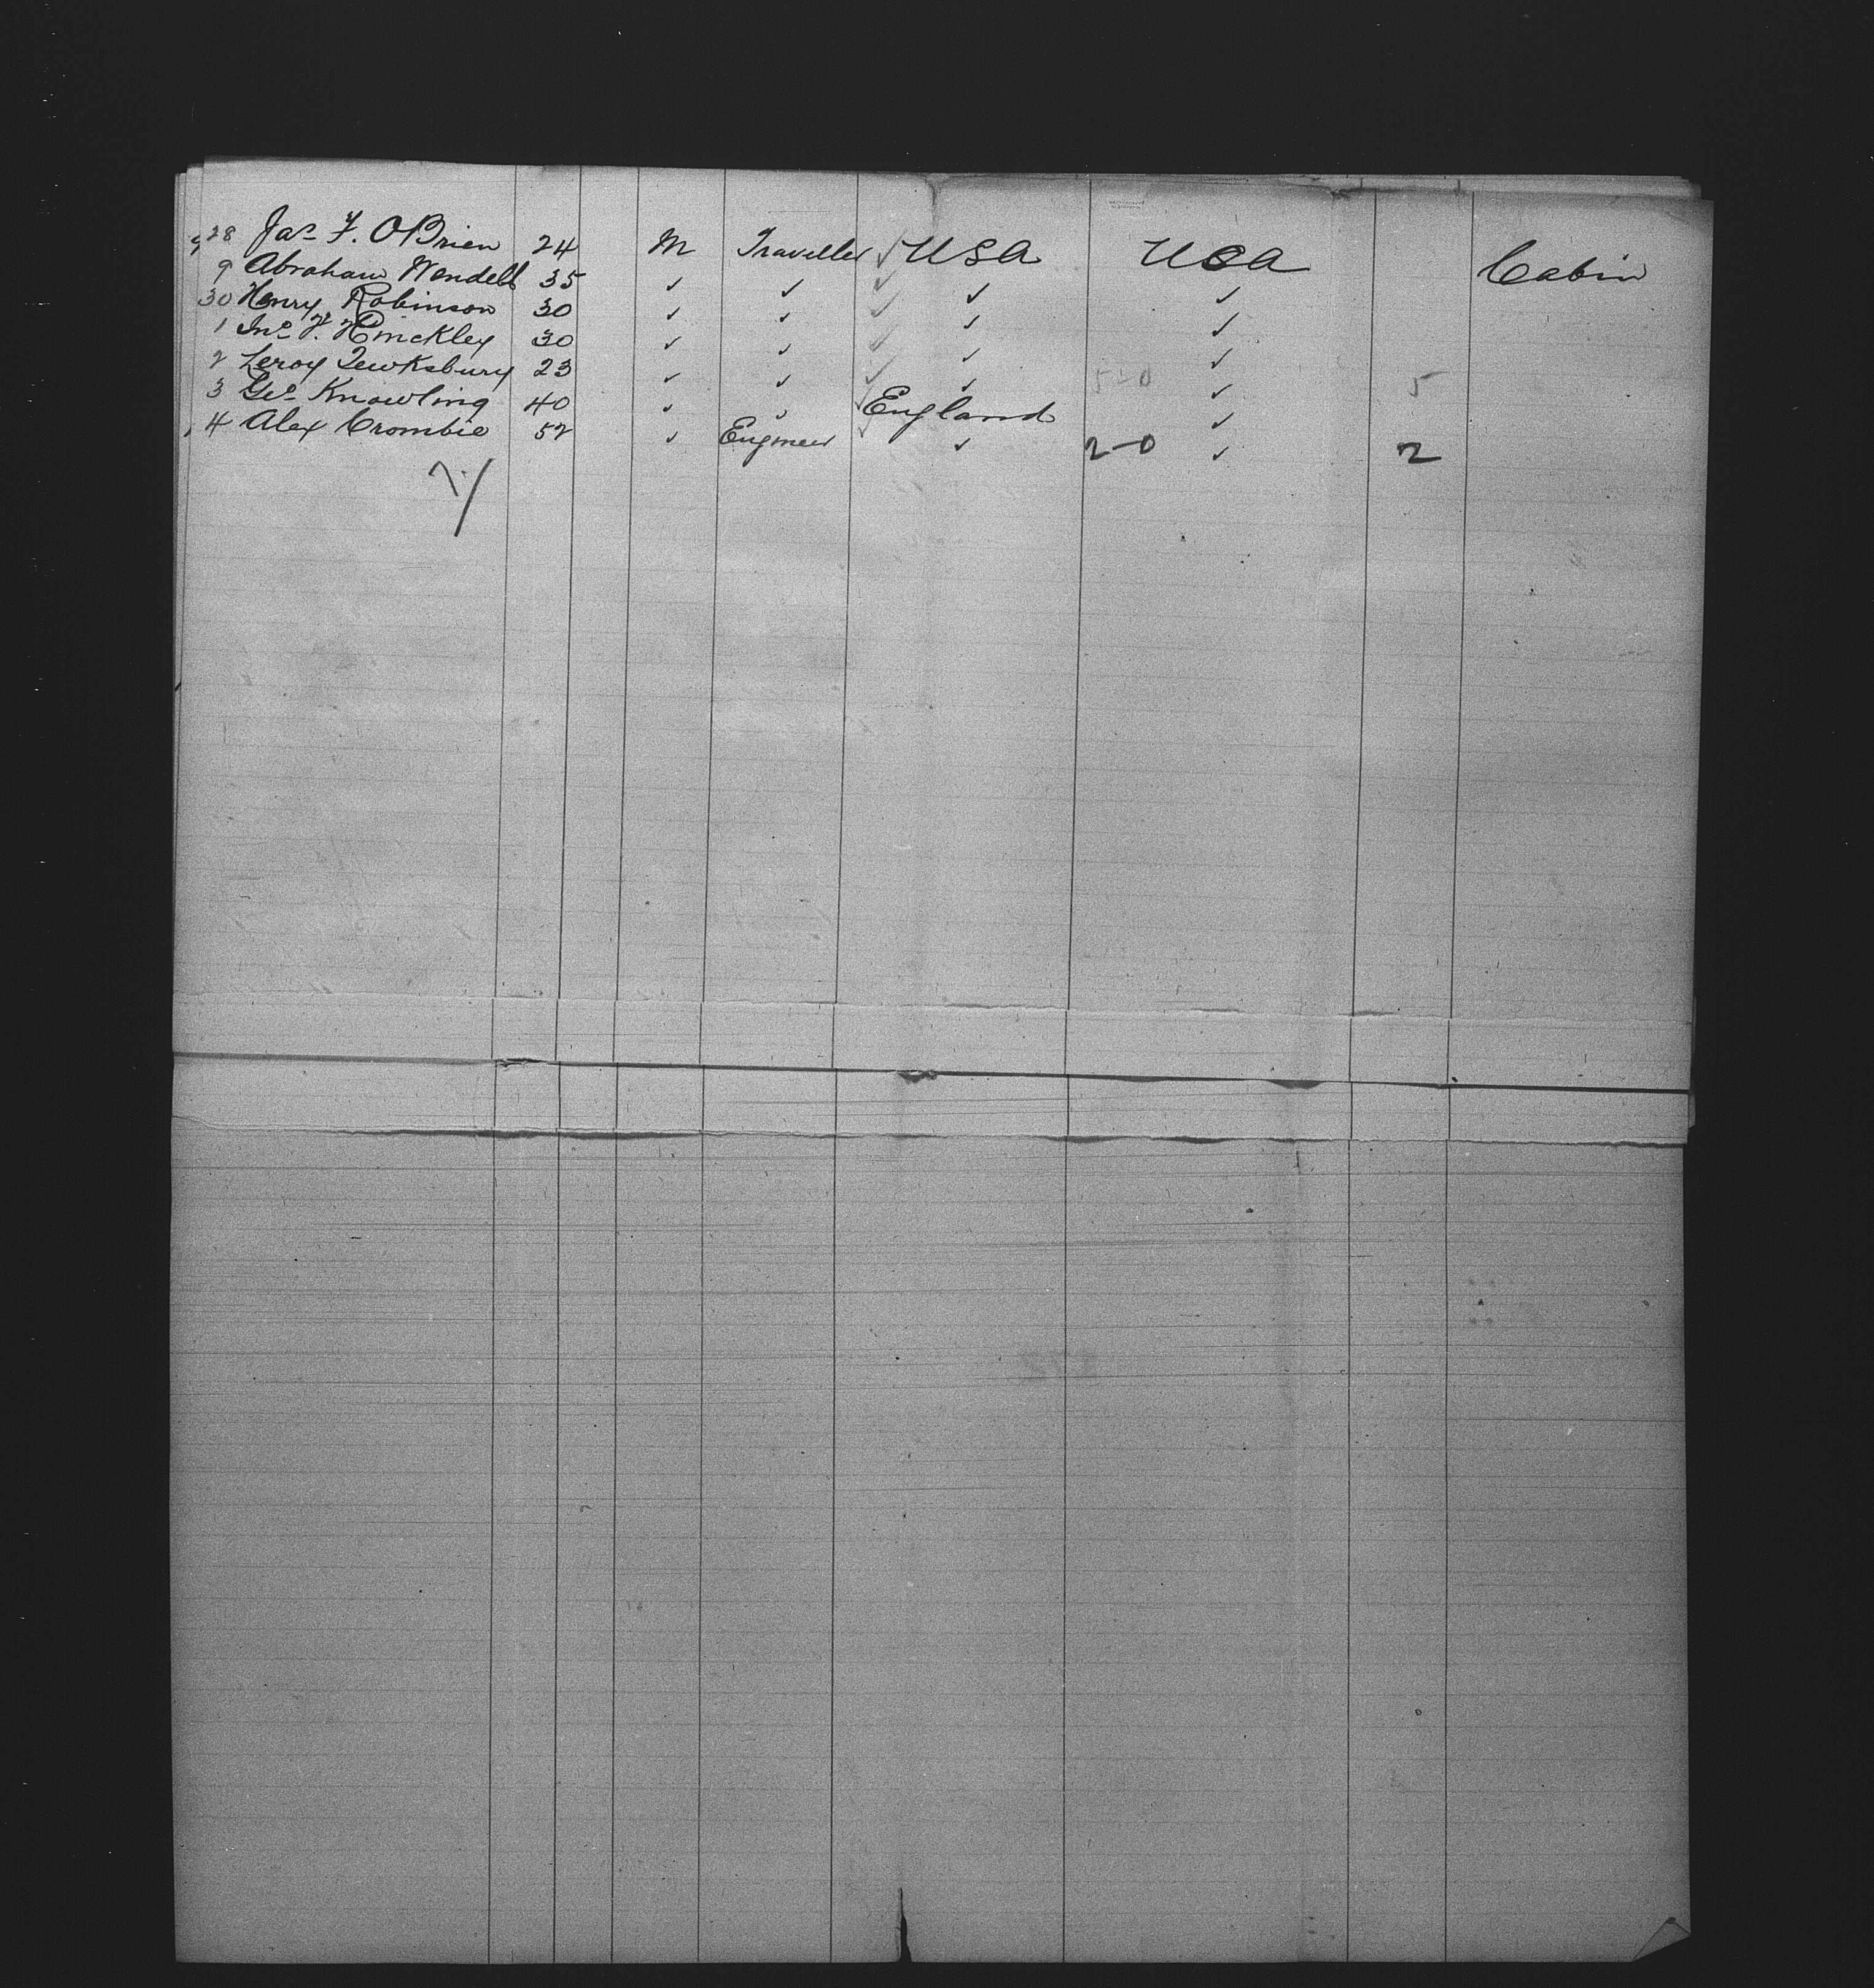 28 Jas F. OBrien 24 M Traveller ✓ USA USA Cabin
9 Abraham Wendell 35 ✓ ✓ ✓ ✓ ✓
30 Henry Robinson 30 ✓ ✓ ✓ ✓ ✓
1 Jno F. Hinckley 30 ✓ ✓ ✓ ✓ ✓
2 Leroy Tewksbury 23 ✓ ✓ ✓ ✓ 5-0 ✓ 5
3 Geo Knowling 40 ✓ ✓ ✓ England ✓
4 Alex Crombie 52 ✓ Engineer ✓ ✓ 2-0 ✓ 2